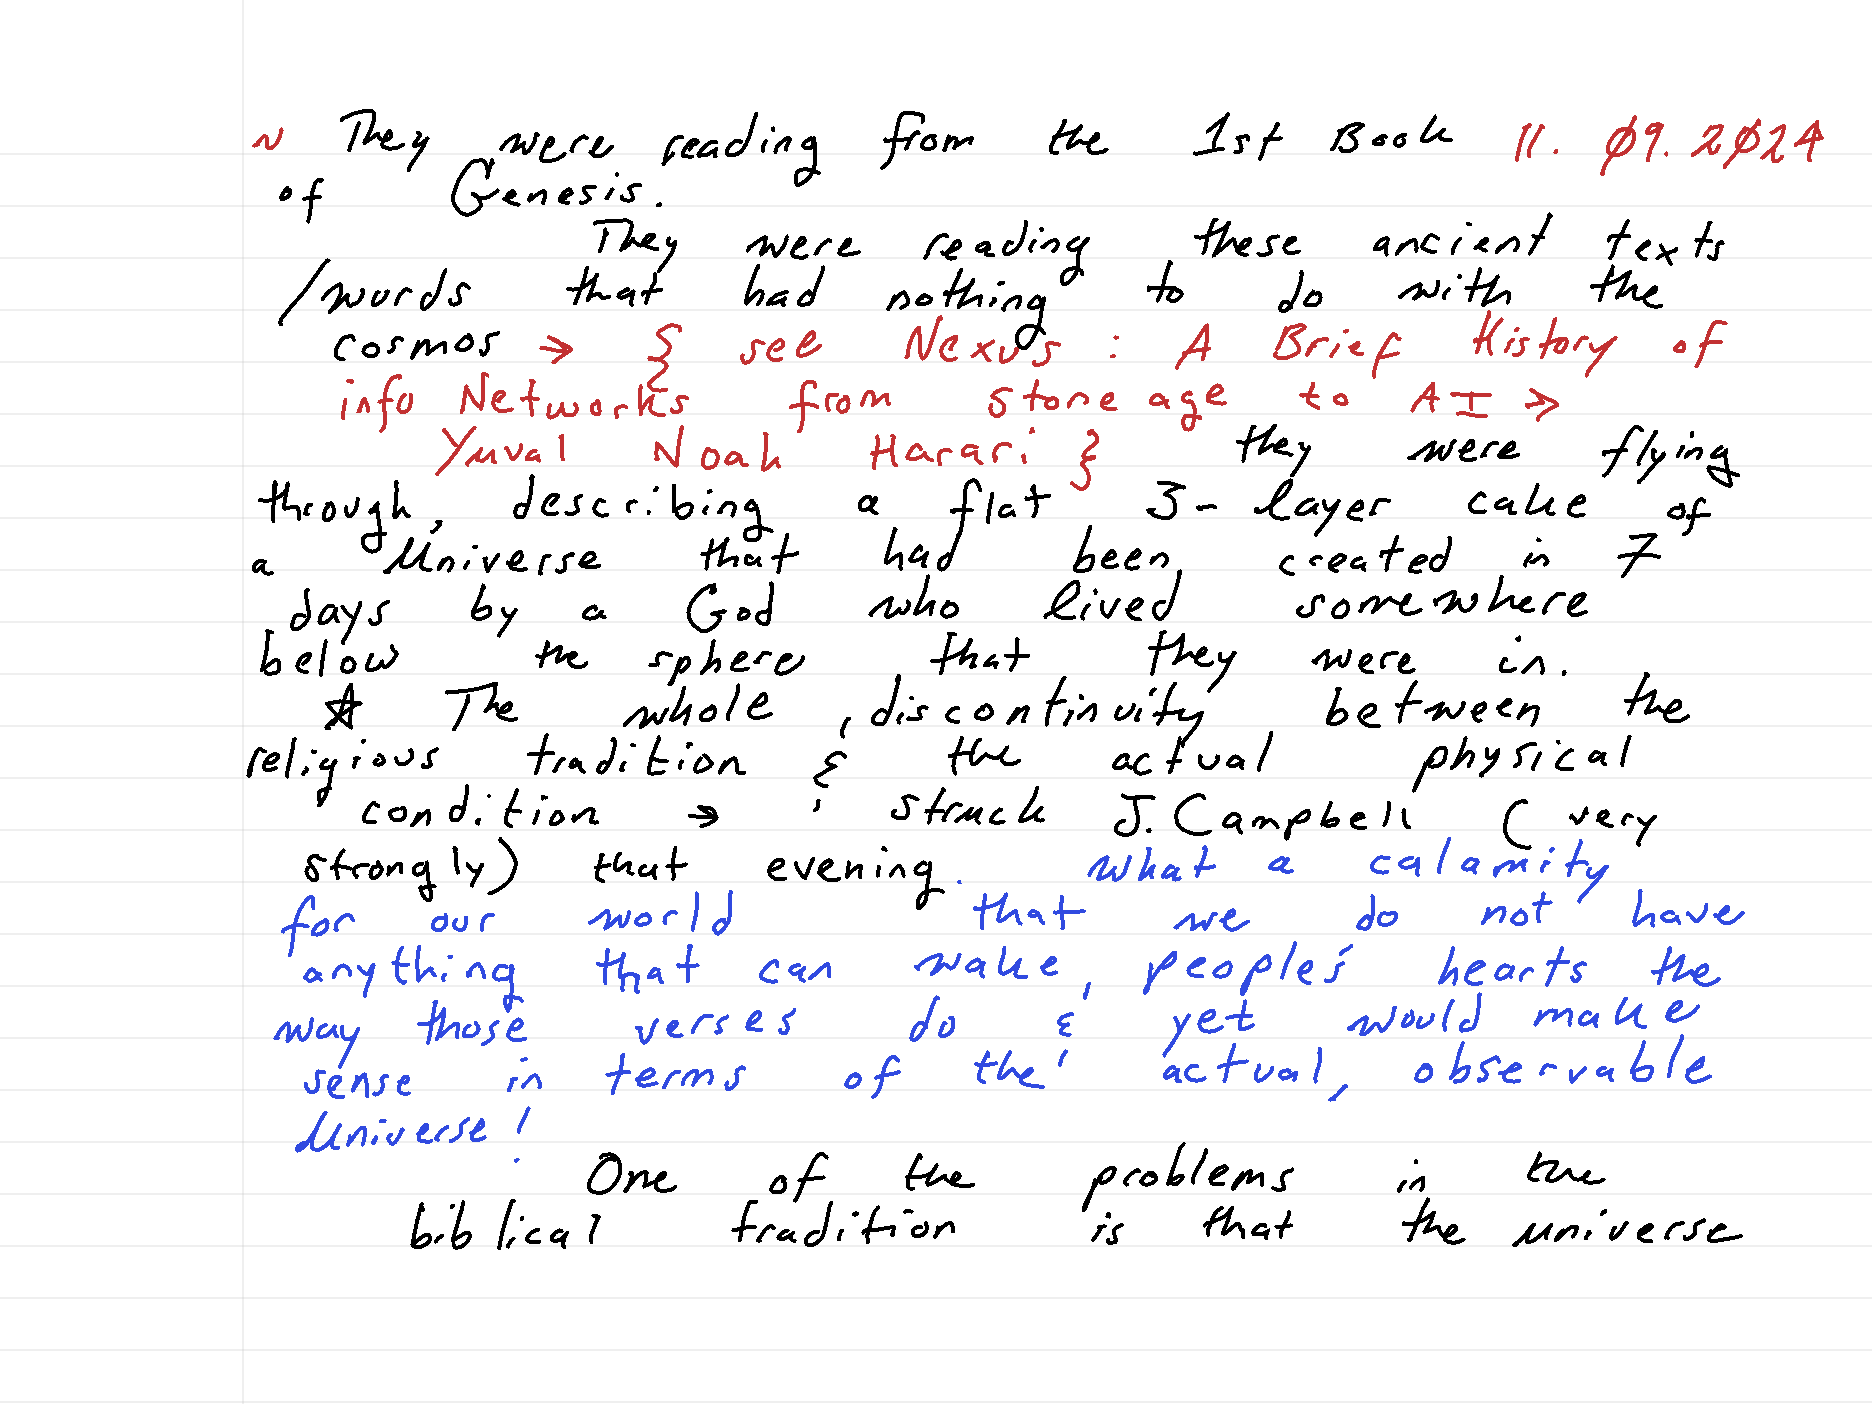 ~ They were reading from the 1st Book 11. Ø9. 2Ø24
of Genesis.
They were reading these ancient texts
/words that had nothing to do with the
cosmos → { see Nexus : A Brief History of
info Networks from Stone age to AI →
Yuval Noah Harari } they were flying
through, describing a flat 3-layer cake of
a Universe that had been created in 7
days by a God who lived somewhere
below the sphere that they were in.
☆ The whole discontinuity between the
religious tradition & the actual physical
condition → struck J. Campbell (very
strongly) that evening. What a calamity
for our world that we do not have
anything that can wake people's hearts the
way those verses do & yet would make
sense in terms of the actual, observable
Universe!
One of the problems in the
biblical tradition is that the universe